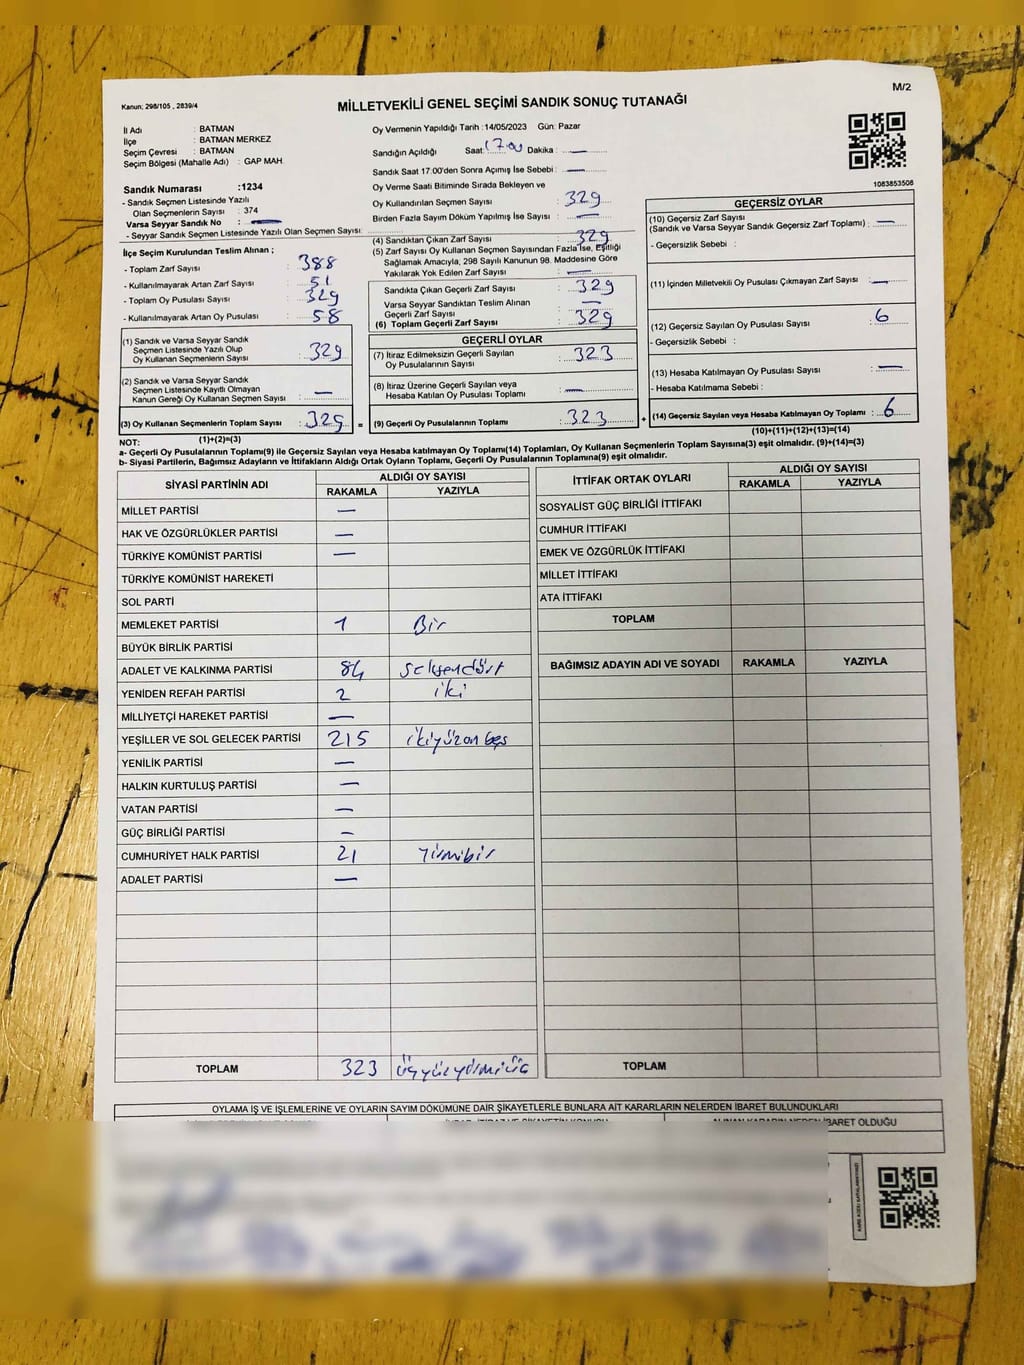 M/2
Kanun; 298/105 , 2839/4
MİLLETVEKİLİ GENEL SEÇİMİ SANDIK SONUÇ TUTANAĞI
İl Adı : BATMAN
İlçe : BATMAN MERKEZ
Seçim Çevresi : BATMAN
Seçim Bölgesi (Mahalle Adı) : GAP MAH.
Sandık Numarası :1234
- Sandık Seçmen Listesinde Yazılı
Olan Seçmenlerin Sayısı : 374
Varsa Seyyar Sandık No : —
- Seyyar Sandık Seçmen Listesinde Yazılı Olan Seçmen Sayısı:
Oy Vermenin Yapıldığı Tarih :14/05/2023 Gün: Pazar
Sandığın Açıldığı Saat: 17.00 Dakika : —
Sandık Saat 17.00'den Sonra Açımış İse Sebebi : —
Oy Verme Saati Bitiminde Sırada Bekleyen ve
Oy Kullandırılan Seçmen Sayısı : 329
Birden Fazla Sayım Döküm Yapılmış İse Sayısı : —
1083853508
İlçe Seçim Kurulundan Teslim Alınan ;
- Toplam Zarf Sayısı : 388
- Kullanılmayarak Artan Zarf Sayısı : 51
- Toplam Oy Pusulası Sayısı : 329
- Kullanılmayarak Artan Oy Pusulası : 58
(1) Sandık ve Varsa Seyyar Sandık
Seçmen Listesinde Yazılı Olup
Oy Kullanan Seçmenlerin Sayısı : 329
(2) Sandık ve Varsa Seyyar Sandık
Seçmen Listesinde Kayıtlı Olmayan
Kanun Gereği Oy Kullanan Seçmen Sayısı : —
(3) Oy Kullanan Seçmenlerin Toplam Sayısı : 329 =
(1)+(2)=(3)
(4) Sandıktan Çıkan Zarf Sayısı : 329
(5) Zarf Sayısı Oy Kullanan Seçmen Sayısından Fazla İse, Eşitliği
Sağlamak Amacıyla, 298 Sayılı Kanunun 98. Maddesine Göre
Yakılarak Yok Edilen Zarf Sayısı : —
Sandıkta Çıkan Geçerli Zarf Sayısı : 329
Varsa Seyyar Sandıktan Teslim Alınan
Geçerli Zarf Sayısı : —
(6) Toplam Geçerli Zarf Sayısı : 329
GEÇERLİ OYLAR
(7) İtiraz Edilmeksizin Geçerli Sayılan
Oy Pusulalarının Sayısı : 323
(8) İtiraz Üzerine Geçerli Sayılan veya
Hesaba Katılan Oy Pusulaları Toplamı : —
(9) Geçerli Oy Pusulalarının Toplamı : 323 +
GEÇERSİZ OYLAR
(10) Geçersiz Zarf Sayısı
(Sandık ve Varsa Seyyar Sandık Geçersiz Zarf Toplamı) : —
- Geçersizlik Sebebi :
(11) İçinden Milletvekili Oy Pusulası Çıkmayan Zarf Sayısı : —
(12) Geçersiz Sayılan Oy Pusulası Sayısı : 6
- Geçersizlik Sebebi :
(13) Hesaba Katılmayan Oy Pusulası Sayısı : —
- Hesaba Katılmama Sebebi :
(14) Geçersiz Sayılan veya Hesaba Katılmayan Oy Toplamı : 6
(10)+(11)+(12)+(13)=(14)
NOT:
a- Geçerli Oy Pusulalarının Toplamı(9) ile Geçersiz Sayılan veya Hesaba katılmayan Oy Toplamı(14) Toplamları, Oy Kullanan Seçmenlerin Toplam Sayısına(3) eşit olmalıdır. (9)+(14)=(3)
b- Siyasi Partilerin, Bağımsız Adayların ve İttifakların Aldığı Ortak Oyların Toplamı, Geçerli Oy Pusulalarının Toplamına(9) eşit olmalıdır.
SİYASİ PARTİNİN ADI
ALDIĞI OY SAYISI
RAKAMLA YAZIYLA
MİLLET PARTİSİ —
HAK VE ÖZGÜRLÜKLER PARTİSİ —
TÜRKİYE KOMÜNİST PARTİSİ —
TÜRKİYE KOMÜNİST HAREKETİ
SOL PARTİ
MEMLEKET PARTİSİ 1 Bir
BÜYÜK BİRLİK PARTİSİ
ADALET VE KALKINMA PARTİSİ 84 seksendört
YENİDEN REFAH PARTİSİ 2 iki
MİLLİYETÇİ HAREKET PARTİSİ —
YEŞİLLER VE SOL GELECEK PARTİSİ 215 ikiyüzonbeş
YENİLİK PARTİSİ —
HALKIN KURTULUŞ PARTİSİ —
VATAN PARTİSİ —
GÜÇ BİRLİĞİ PARTİSİ —
CUMHURİYET HALK PARTİSİ 21 Yirmibir
ADALET PARTİSİ —
TOPLAM 323 üçyüzyirmiüç
İTTİFAK ORTAK OYLARI
ALDIĞI OY SAYISI
RAKAMLA YAZIYLA
SOSYALİST GÜÇ BİRLİĞİ İTTİFAKI
CUMHUR İTTİFAKI
EMEK VE ÖZGÜRLÜK İTTİFAKI
MİLLET İTTİFAKI
ATA İTTİFAKI
TOPLAM
BAĞIMSIZ ADAYIN ADI VE SOYADI RAKAMLA YAZIYLA
TOPLAM
OYLAMA İŞ VE İŞLEMLERİNE VE OYLARIN SAYIM DÖKÜMÜNE DAİR ŞİKAYETLERLE BUNLARA AİT KARARLARIN NELERDEN İBARET BULUNDUKLARI
ALINAN KARARIN NEDEN İBARET OLDUĞU